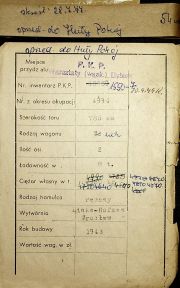 skreśl. 28.7.47.
oprzed. do Huty Pokój
54
oprzed do Huty Pokój
Miejsce przydziału P. K. P.
Warsztaty (wąsk.) Bytom
Nr. inwentarz P.K.P. 1550
Nr. z okresu okupacji 4994
Szerokość toru 785 mm
Rodzaj wagonu
Ilość osi 2
Ładowność w t. 8 t.
Ciężar własny w t. 4870
Rodzaj hamulca ręczny
Wytwórnia Linke-Hofman Wrocław
Rok budowy 1943
Wartość wag. w zł.